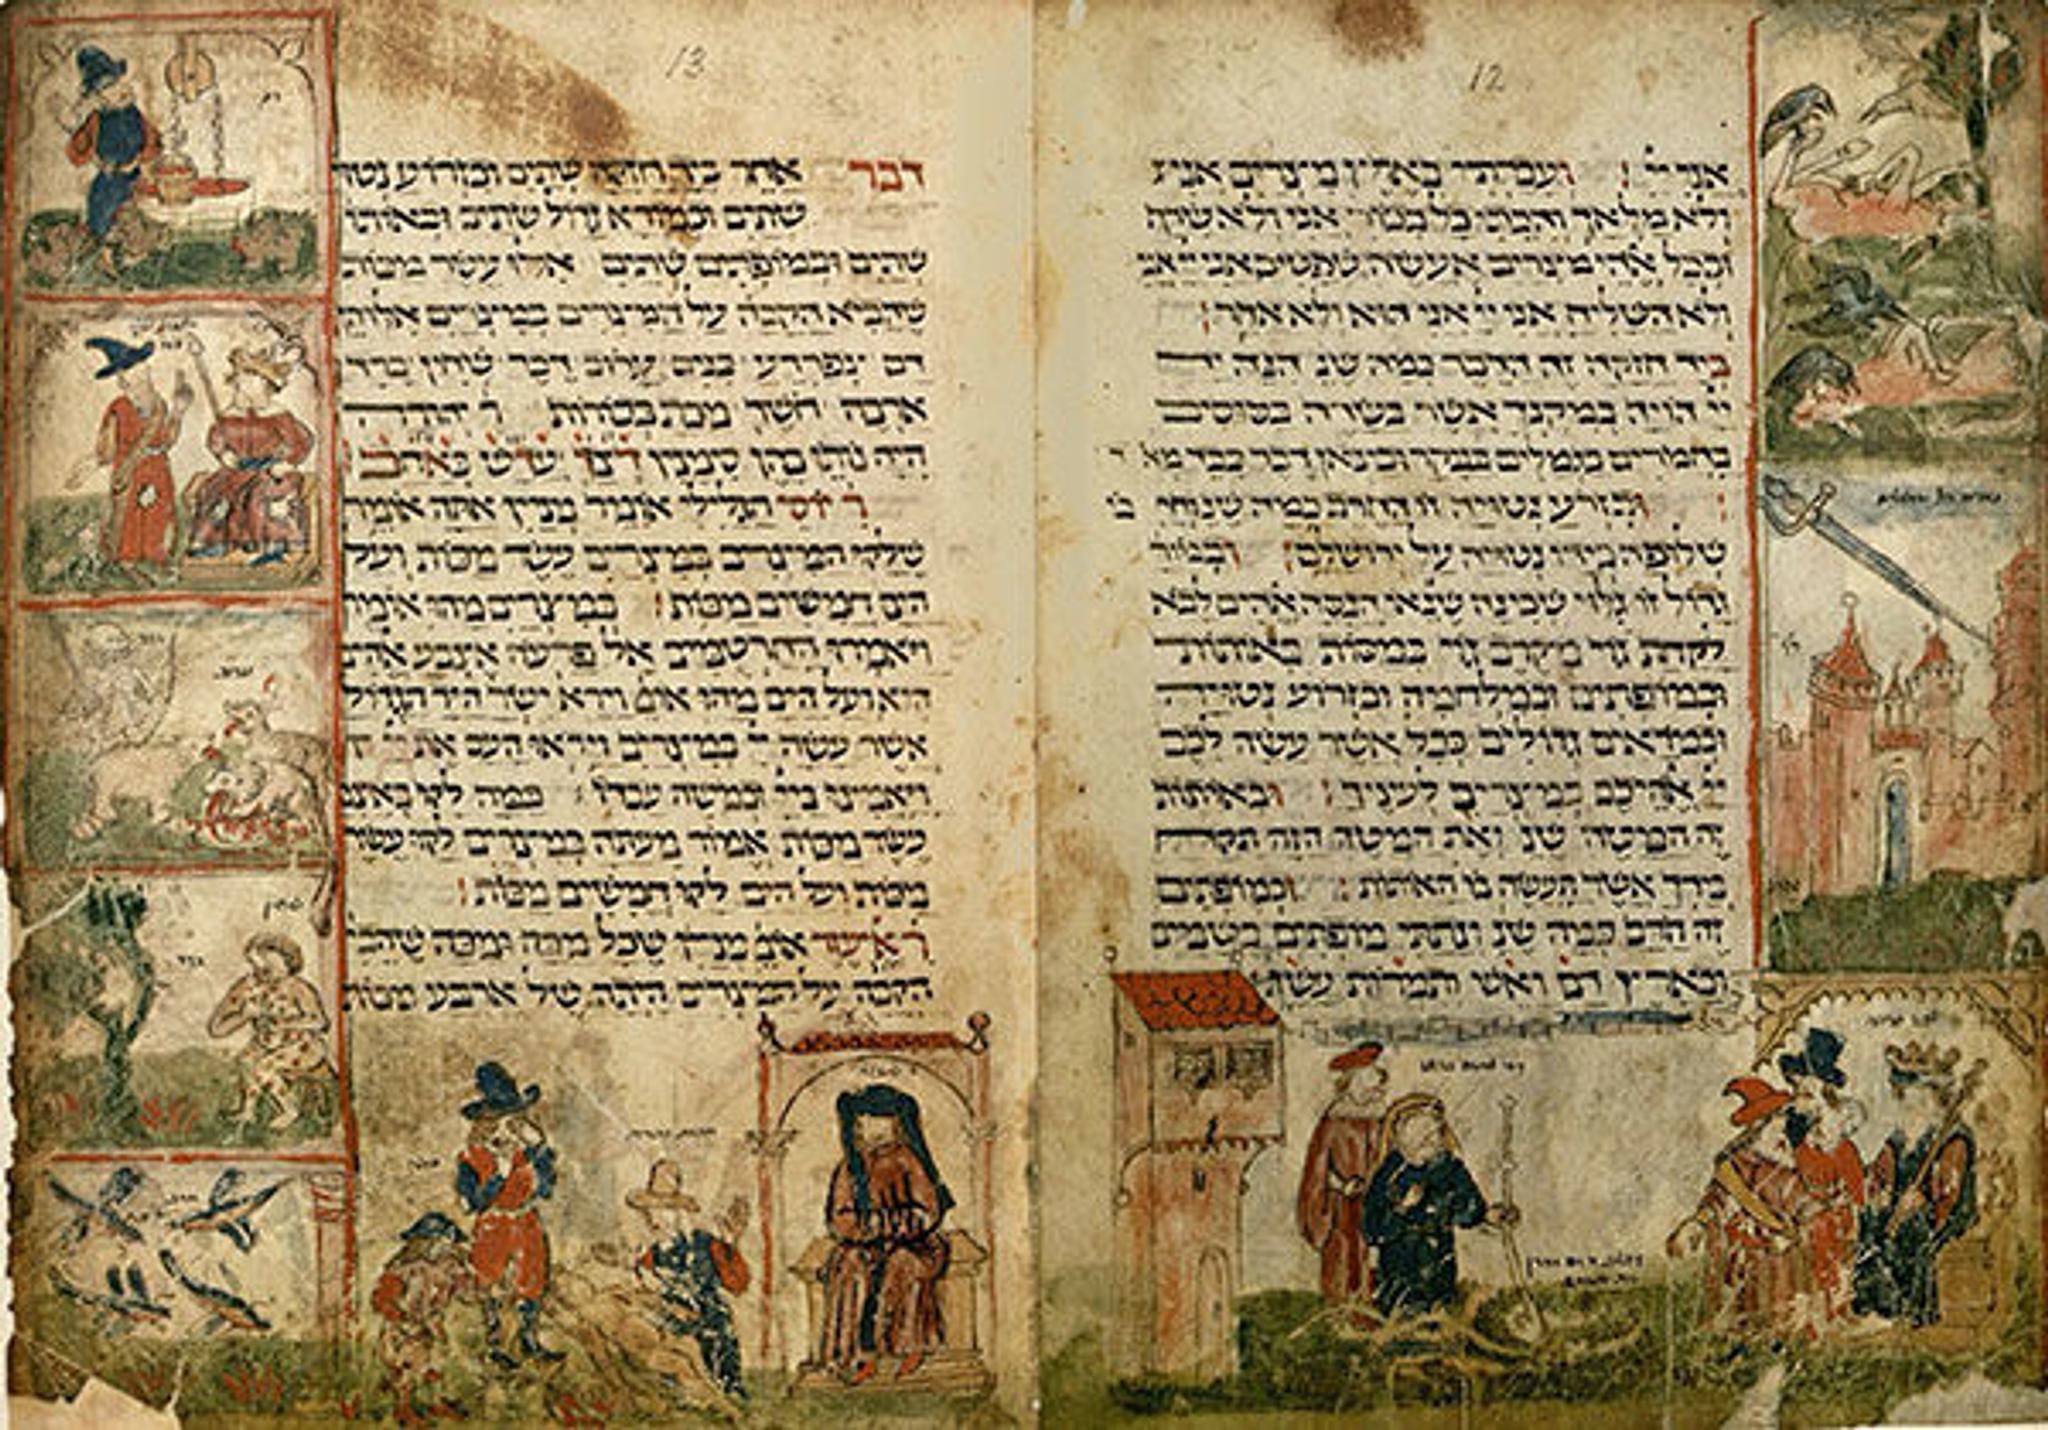 12
אני יי ועברתי בארץ מצרים אני
ולא מלאך והכתי כל בכור אני ולא שרף
ובכל אהי מצרים אעשה שפטים אני יי אני
ולא השליח אני יי אני הוא ולא אחר
ביד חזקה זה הדבר כמה שנ הנה יד
יי הויה במקנך אשר בשדה בסוסים
בחמורים בגמלים בבקר ובצאן דבר כבד מא
ובזרע נטוייה זו החרב כמה שנ וחרבו
שלופה בידו נטויה על ירושלם ובמורא
גדול זו גלוי שכינה שנאי הנסה אהים לבא
לקחת גוי מקרב גוי במסות באותות
ובמופתים ובמלחמה ובזרוע נטויה
ובמוראים גדולים ככל אשר עשה לכם
יי אהיכם במצרים לעיניך ובאותות
זה המטה שנ ואת המטה הזה תקח
בידך אשר תעשה בו האותות ובמופתים
זה הדם כמה שנ ונתתי מופתים בשמים
ובארץ דם ואש ותמרות עשן
13
דבר אחר ביד חזקה שתים ובזרוע נטוי
שתים ובמורא גדול שתים ובאותו
שתים ובמופתים שתים אלו עשר מכות
שהביא הקבה על המצרים במצרים אלו הן
דם צפרדע כנים ערוב דבר שחין ברד
ארבה חשך מכת בכורות ר יהודה
היה נותן בהן סימנין דצך עדש באחב
ר יוסי הגלילי אומר מנין אתה אומר
שלקו המצרים במצרים עשר מכות ועל
הים חמישים מכות במצרים מהו אומר
ויאמרו החרטומים אל פרעה אצבע אהים
היא ועל הים מהו אומ וירא ישר היד הגדול
אשר עשה יי במצרים וייראו העם את יי
ויאמינו ביי ובמשה עבדו כמה לקו באצב
עשר מכות אמור מעתה במצרים לקו עשר
מכות ועל הים לקו חמישים מכות
ר אליעזר אומ מנין שכל מכה ומכה שהביא
הקבה על המצרים היתה של ארבע מכות
שחין